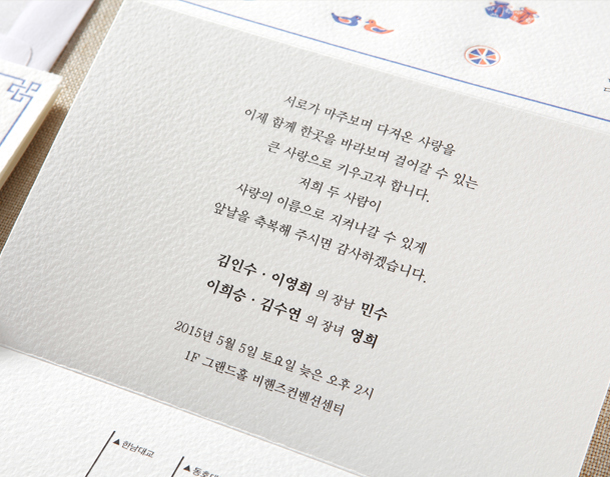 서로가 마주보며 다져온 사랑을
이제 함께 한곳을 바라보며 걸어갈 수 있는
큰 사랑으로 키우고자 합니다.
저희 두 사람이
사랑의 이름으로 지켜나갈 수 있게
앞날을 축복해 주시면 감사하겠습니다.
김인수 · 이영희 의 장남 민수
이희승 · 김수연 의 장녀 영희
2015년 5월 5일 토요일 늦은 오후 2시
1F 그랜드홀 비핸즈컨벤션센터
▲한남대교